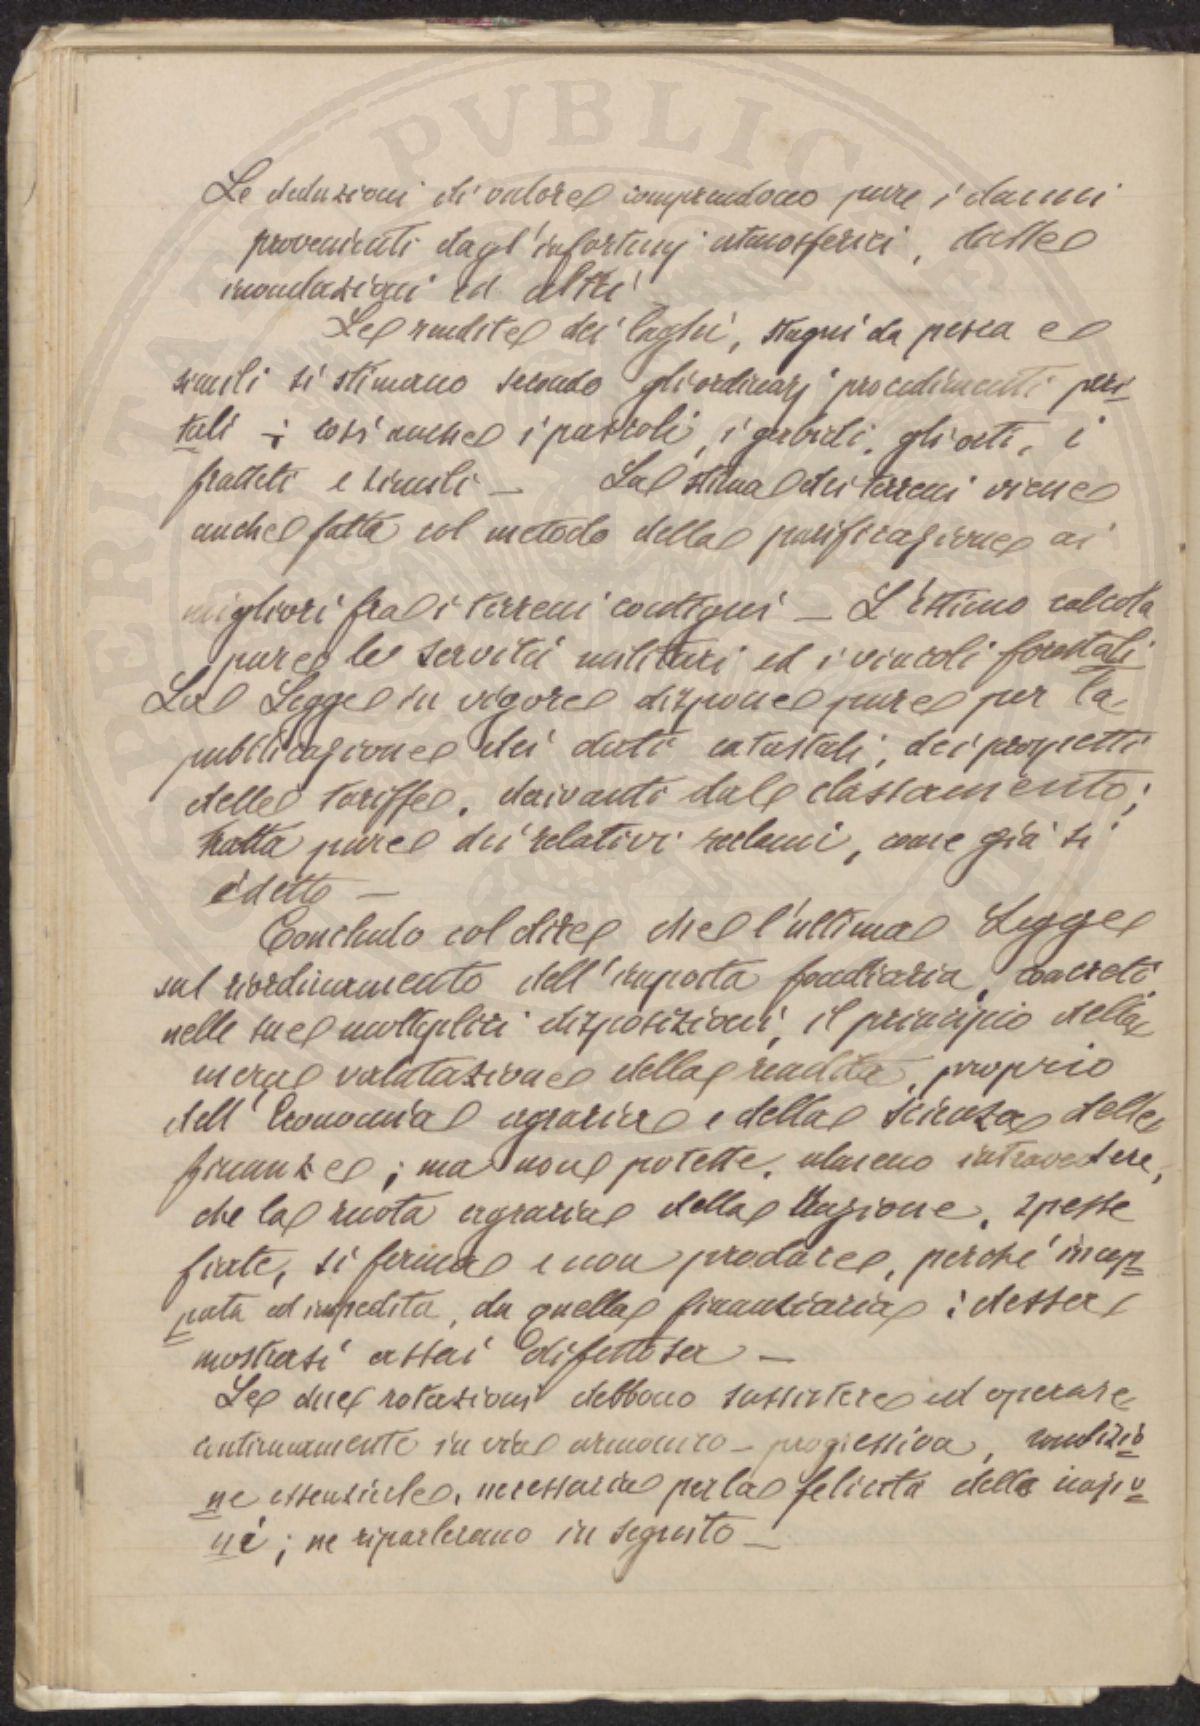 Le deduzioni di valore comprendono pure i danni
provenienti dagl'infortunj atmosferici, dalle
inondazioni ed altri
Le rendite dei laghi, stagni da pesca e
simili si stimano secondo gli ordinarj procedimenti peri-
tali; così anche i pascoli, i gerbidi, gli orti, i
frutteti e simili — La stima dei terreni viene
anche fatta col metodo della parificazione ai
migliori fra i terreni contigui — L'estimo calcola
pure le servitù militari ed i vincoli forestali
La Legge in vigore dispone pure per la
pubblicazione dei dati catastali, dei prospetti
delle tariffe, derivanti dal classamento;
tratta pure dei relativi reclami, come già si
è detto —
Concludo col dire che l'ultima Legge
sul riordinamento dell'imposta fondiaria, concreti
nelle sue molteplici disposizioni, il principio della
mera valutazione della rendita, proprio
dell'Economia agraria e della scienza delle
finanze; ma non potette, almeno intravedere,
che la ruota agraria della Nazione, spesse
fiate, si ferma e non produce, perché incep-
pata ed impedita, da quella finanziaria: dessa
mostrasi assai difettosa —
Le due rotazioni debbono sussistere ed operare
continuamente in via armonico-progressiva, condizio-
ne essenziale, necessaria per la felicità delle nazio-
ni; ne riparleremo in seguito —
PVBLICA